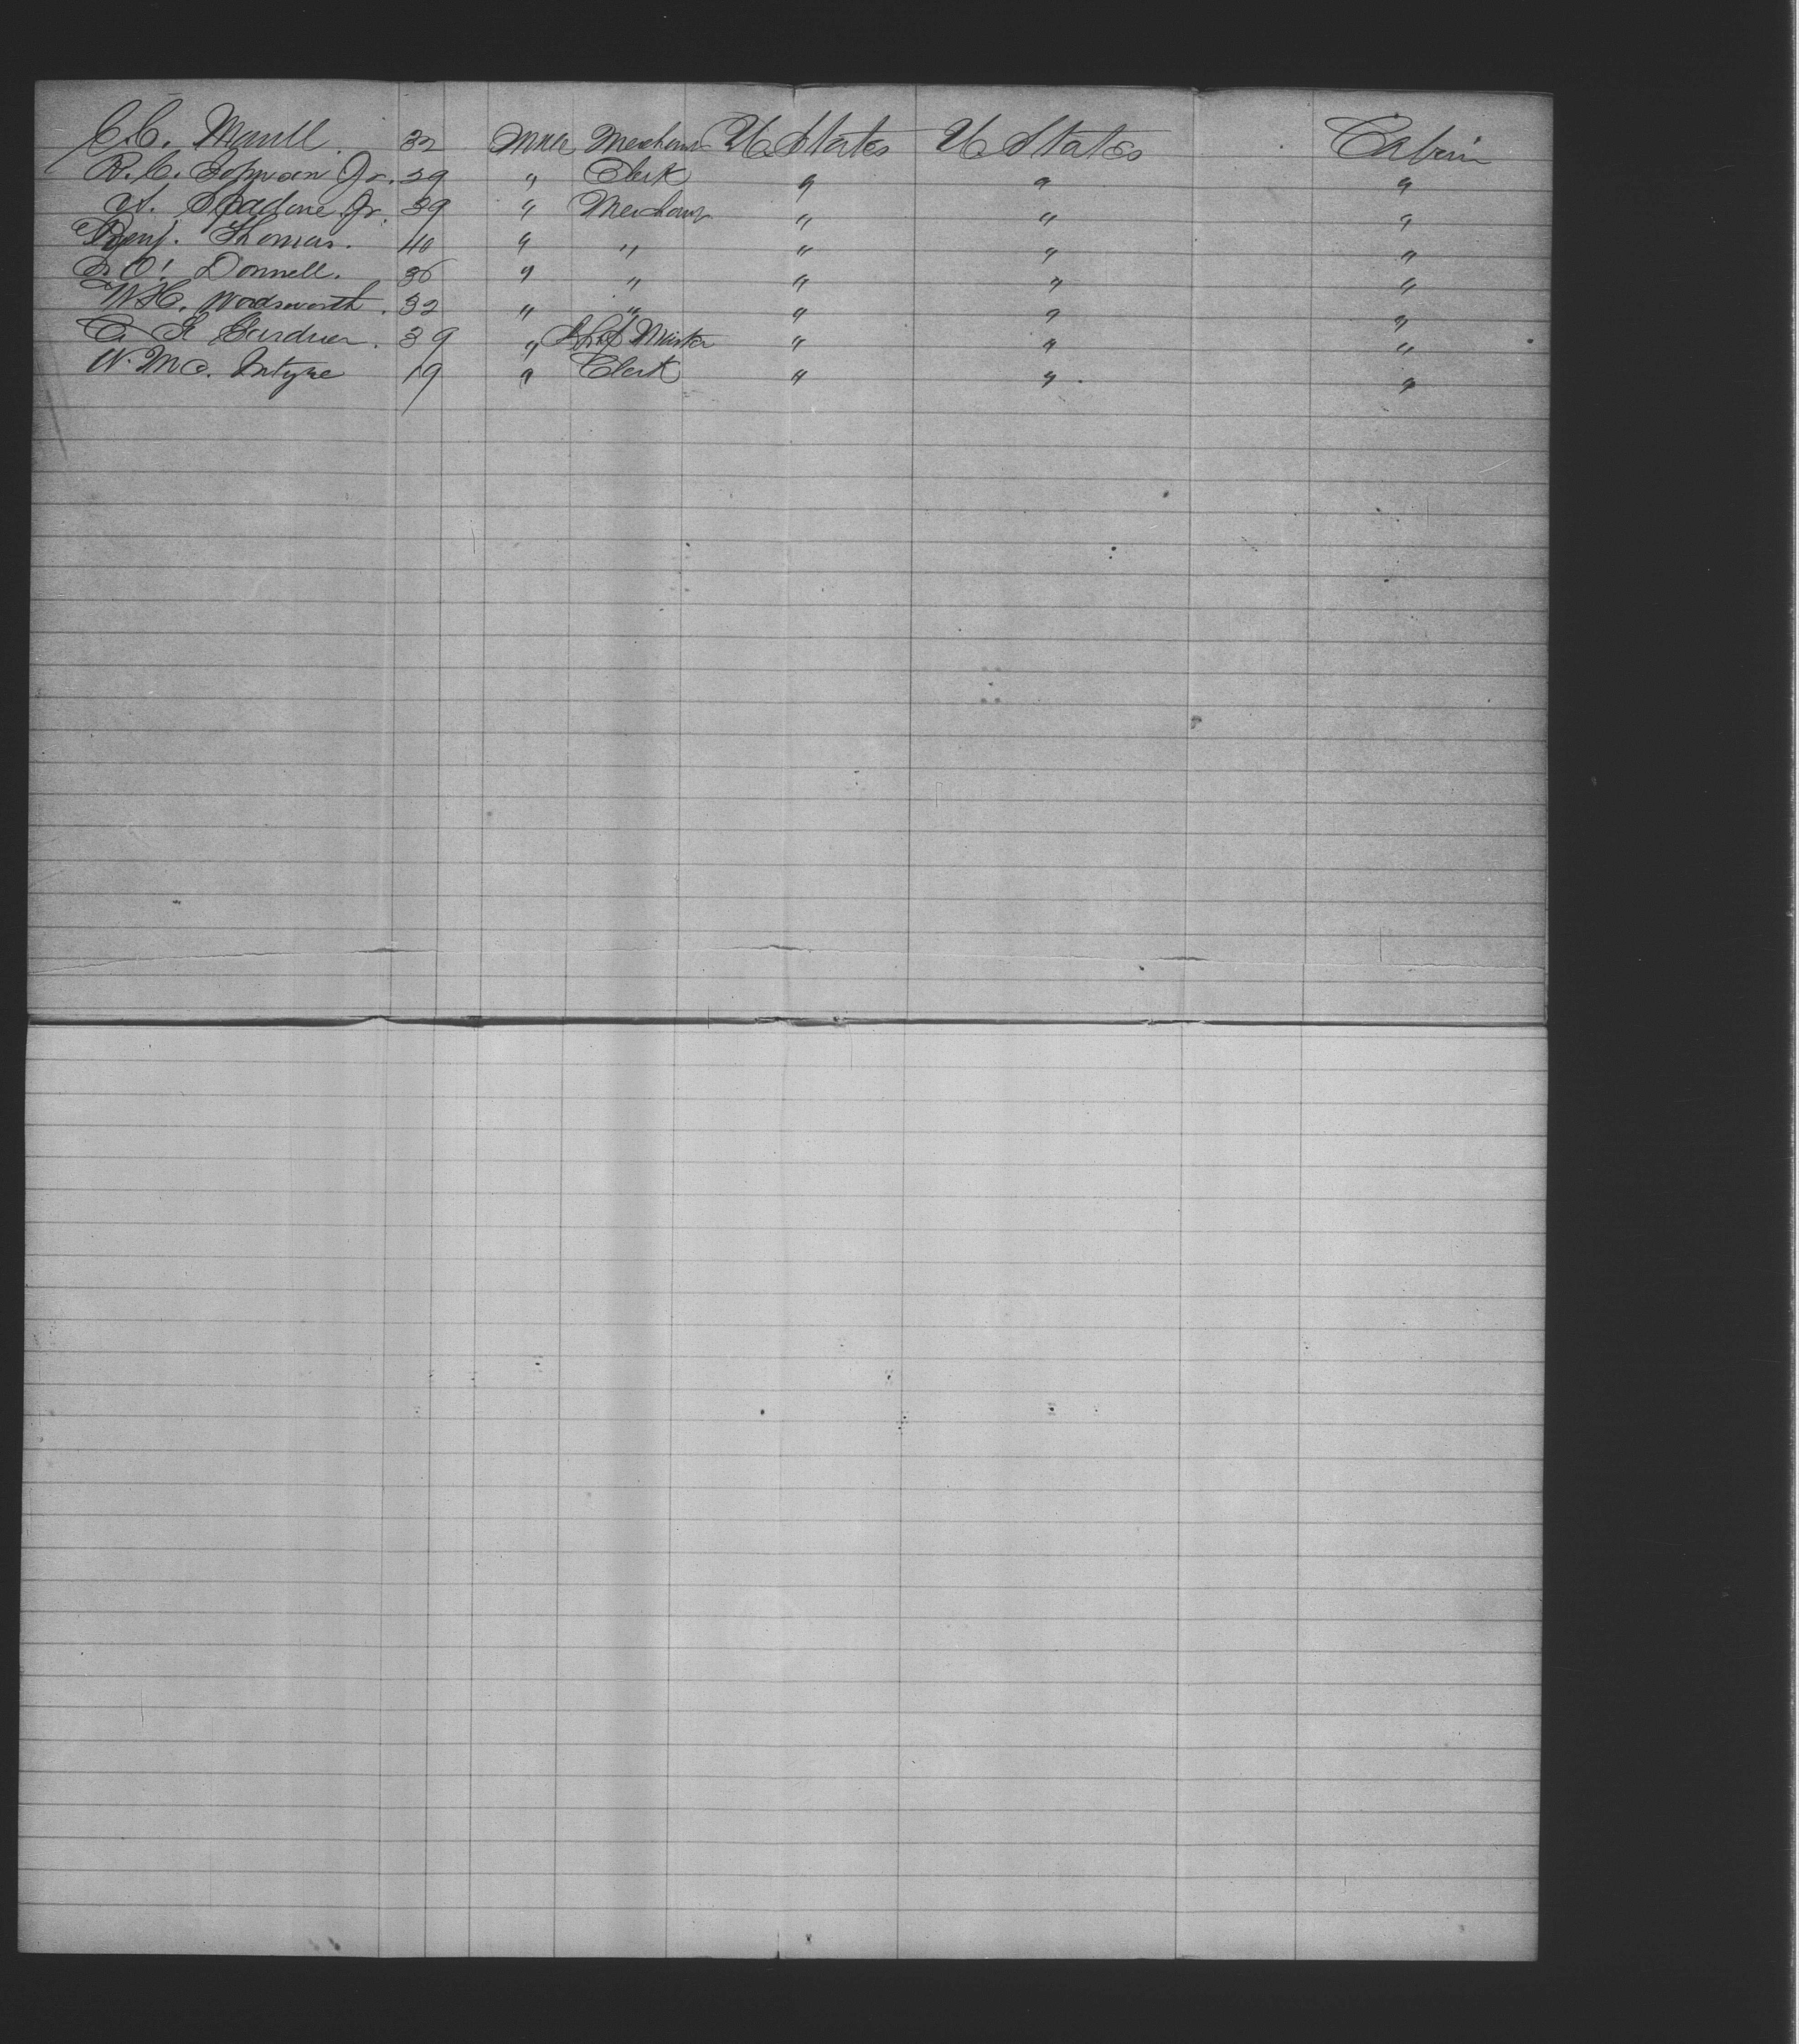 C.C. Maull. 32 Male Merchant U States U States Cabin
R.C. Johnson Jr. 29 " Clerk " " "
A. Spadone Jr. 39 " Merchant " " "
Benj. Thomas. 40 " " " " "
O'Donnell. 36 " " " " "
W.H. Wadsworth. 32 " " " " "
C F Gardner. 39 " Ship Master " " "
W. Mc. Intyre 19 " Clerk " " "